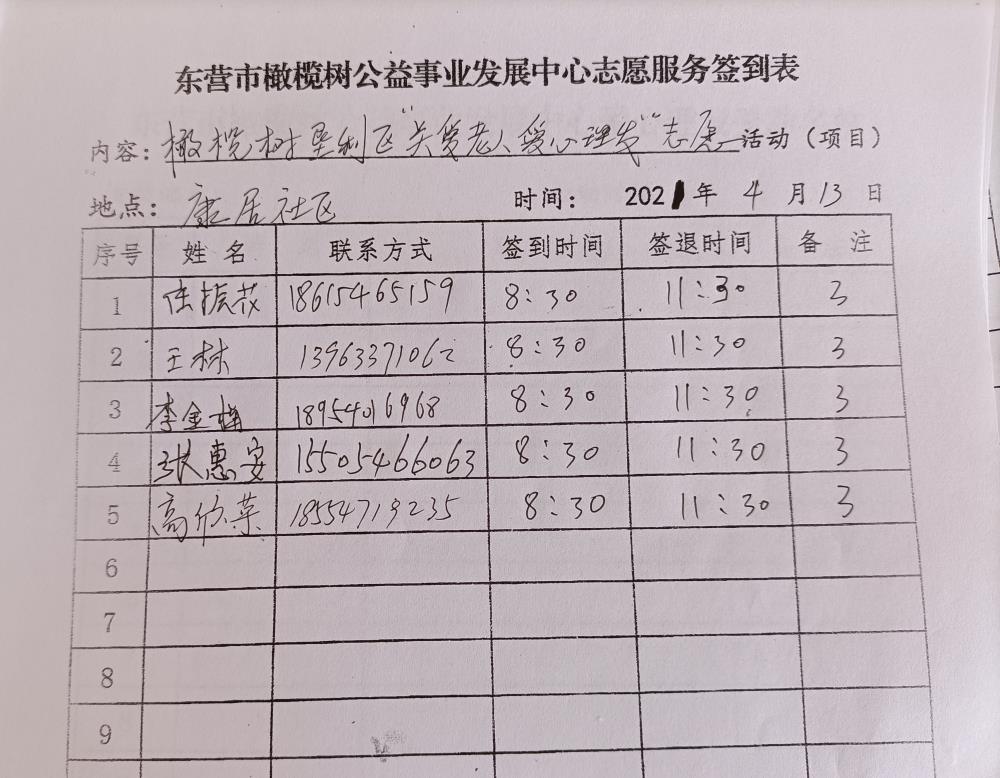 东营市橄榄树公益事业发展中心志愿服务签到表
内容：橄榄树垦利区“关爱老人爱心理发”志愿活动（项目）
地点：康居社区 时间：2021年4月13日
序号 姓名 联系方式 签到时间 签退时间 备注
1 任振茂 18615465159 8:30 11:30 3
2 王林 13963371062 8:30 11:30 3
3 李金梅 18954016968 8:30 11:30 3
4 张惠安 15505466063 8:30 11:30 3
5 高欣荣 18554719235 8:30 11:30 3
6
7
8
9